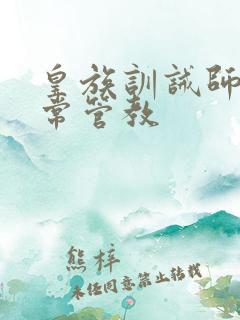 皇族訓誡師
常管教
熊梓
未经同意禁止转载